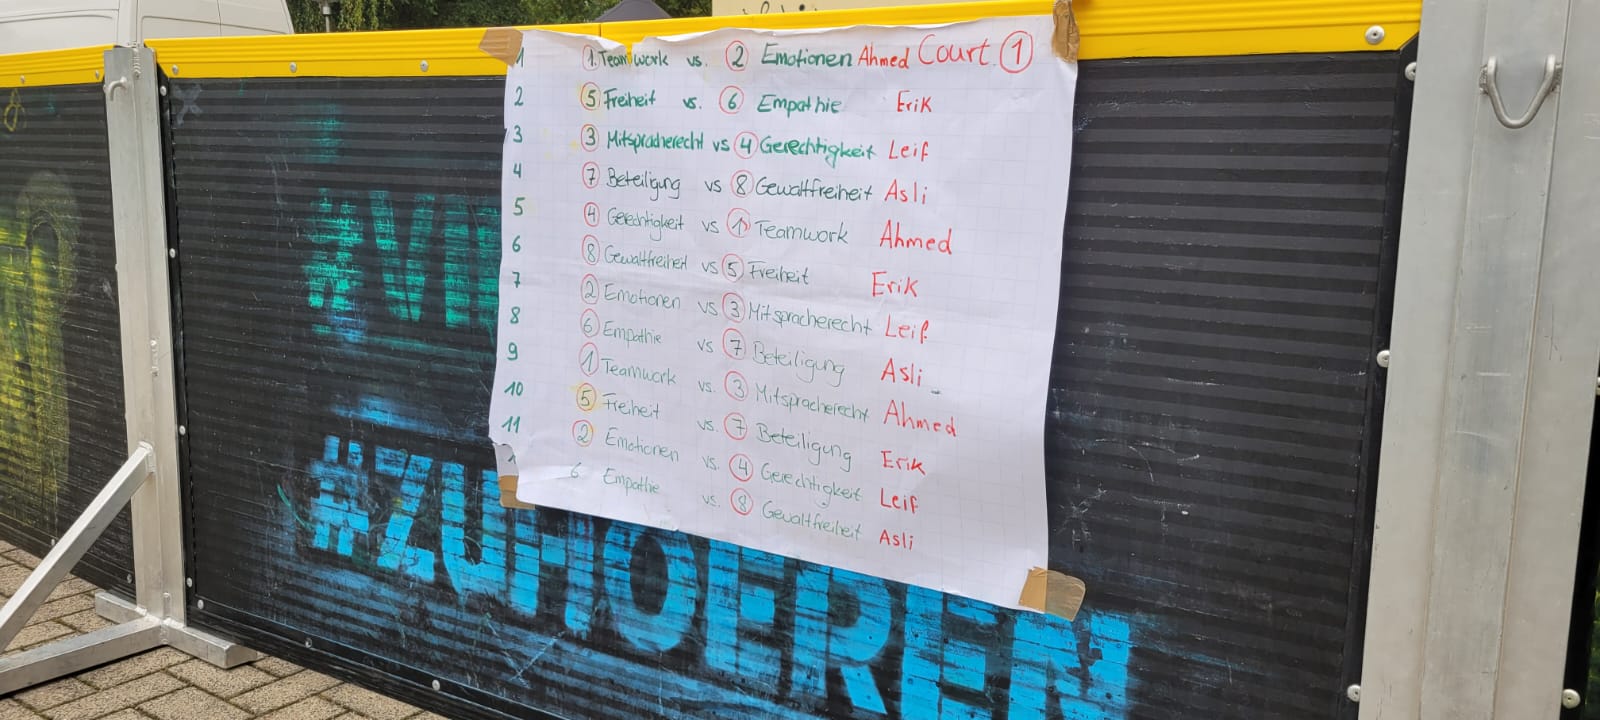 1 1. Teamwork vs. 2 Emotionen Ahmed Court. 1
2 5 Freiheit vs. 6 Empathie Erik
3 3 Mitspracherecht vs 4 Gerechtigkeit Leif
4 7 Beteiligung vs 8 Gewaltfreiheit Asli
5 4 Gerechtigkeit vs 1 Teamwork Ahmed
6 8 Gewaltfreiheit vs 5 Freiheit Erik
7 2 Emotionen vs 3 Mitspracherecht Leif
8 6 Empathie vs 7 Beteiligung Asli
9 1 Teamwork vs. 3 Mitspracherecht Ahmed
10 5 Freiheit vs. 7 Beteiligung Erik
11 2 Emotionen vs. 4 Gerechtigkeit Leif
6 Empathie vs. 8 Gewaltfreiheit Asli
#ZUHOEREN